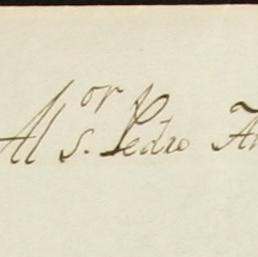 Al S.or Pedro